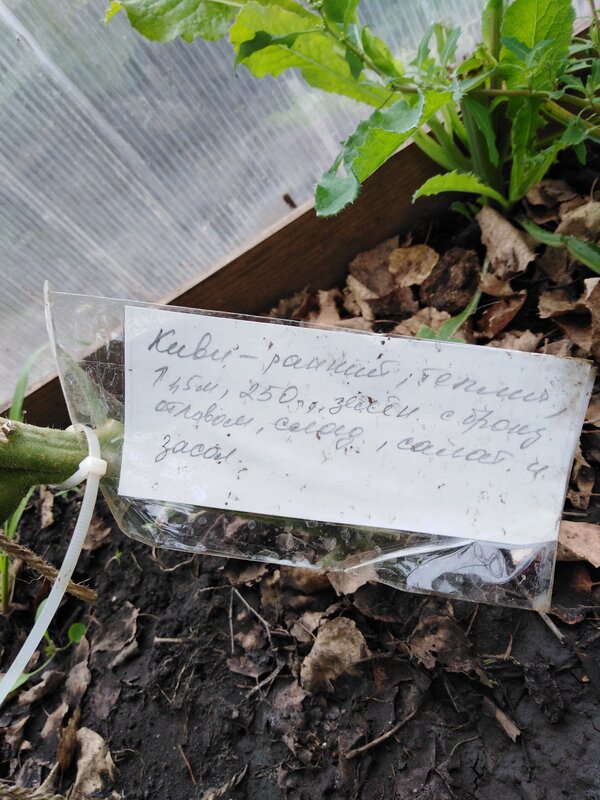 Киви - ранний, теплич,
↑ 1,5м, 250г, зелён. с бронз.
отливом, слад., салат. и
засол.